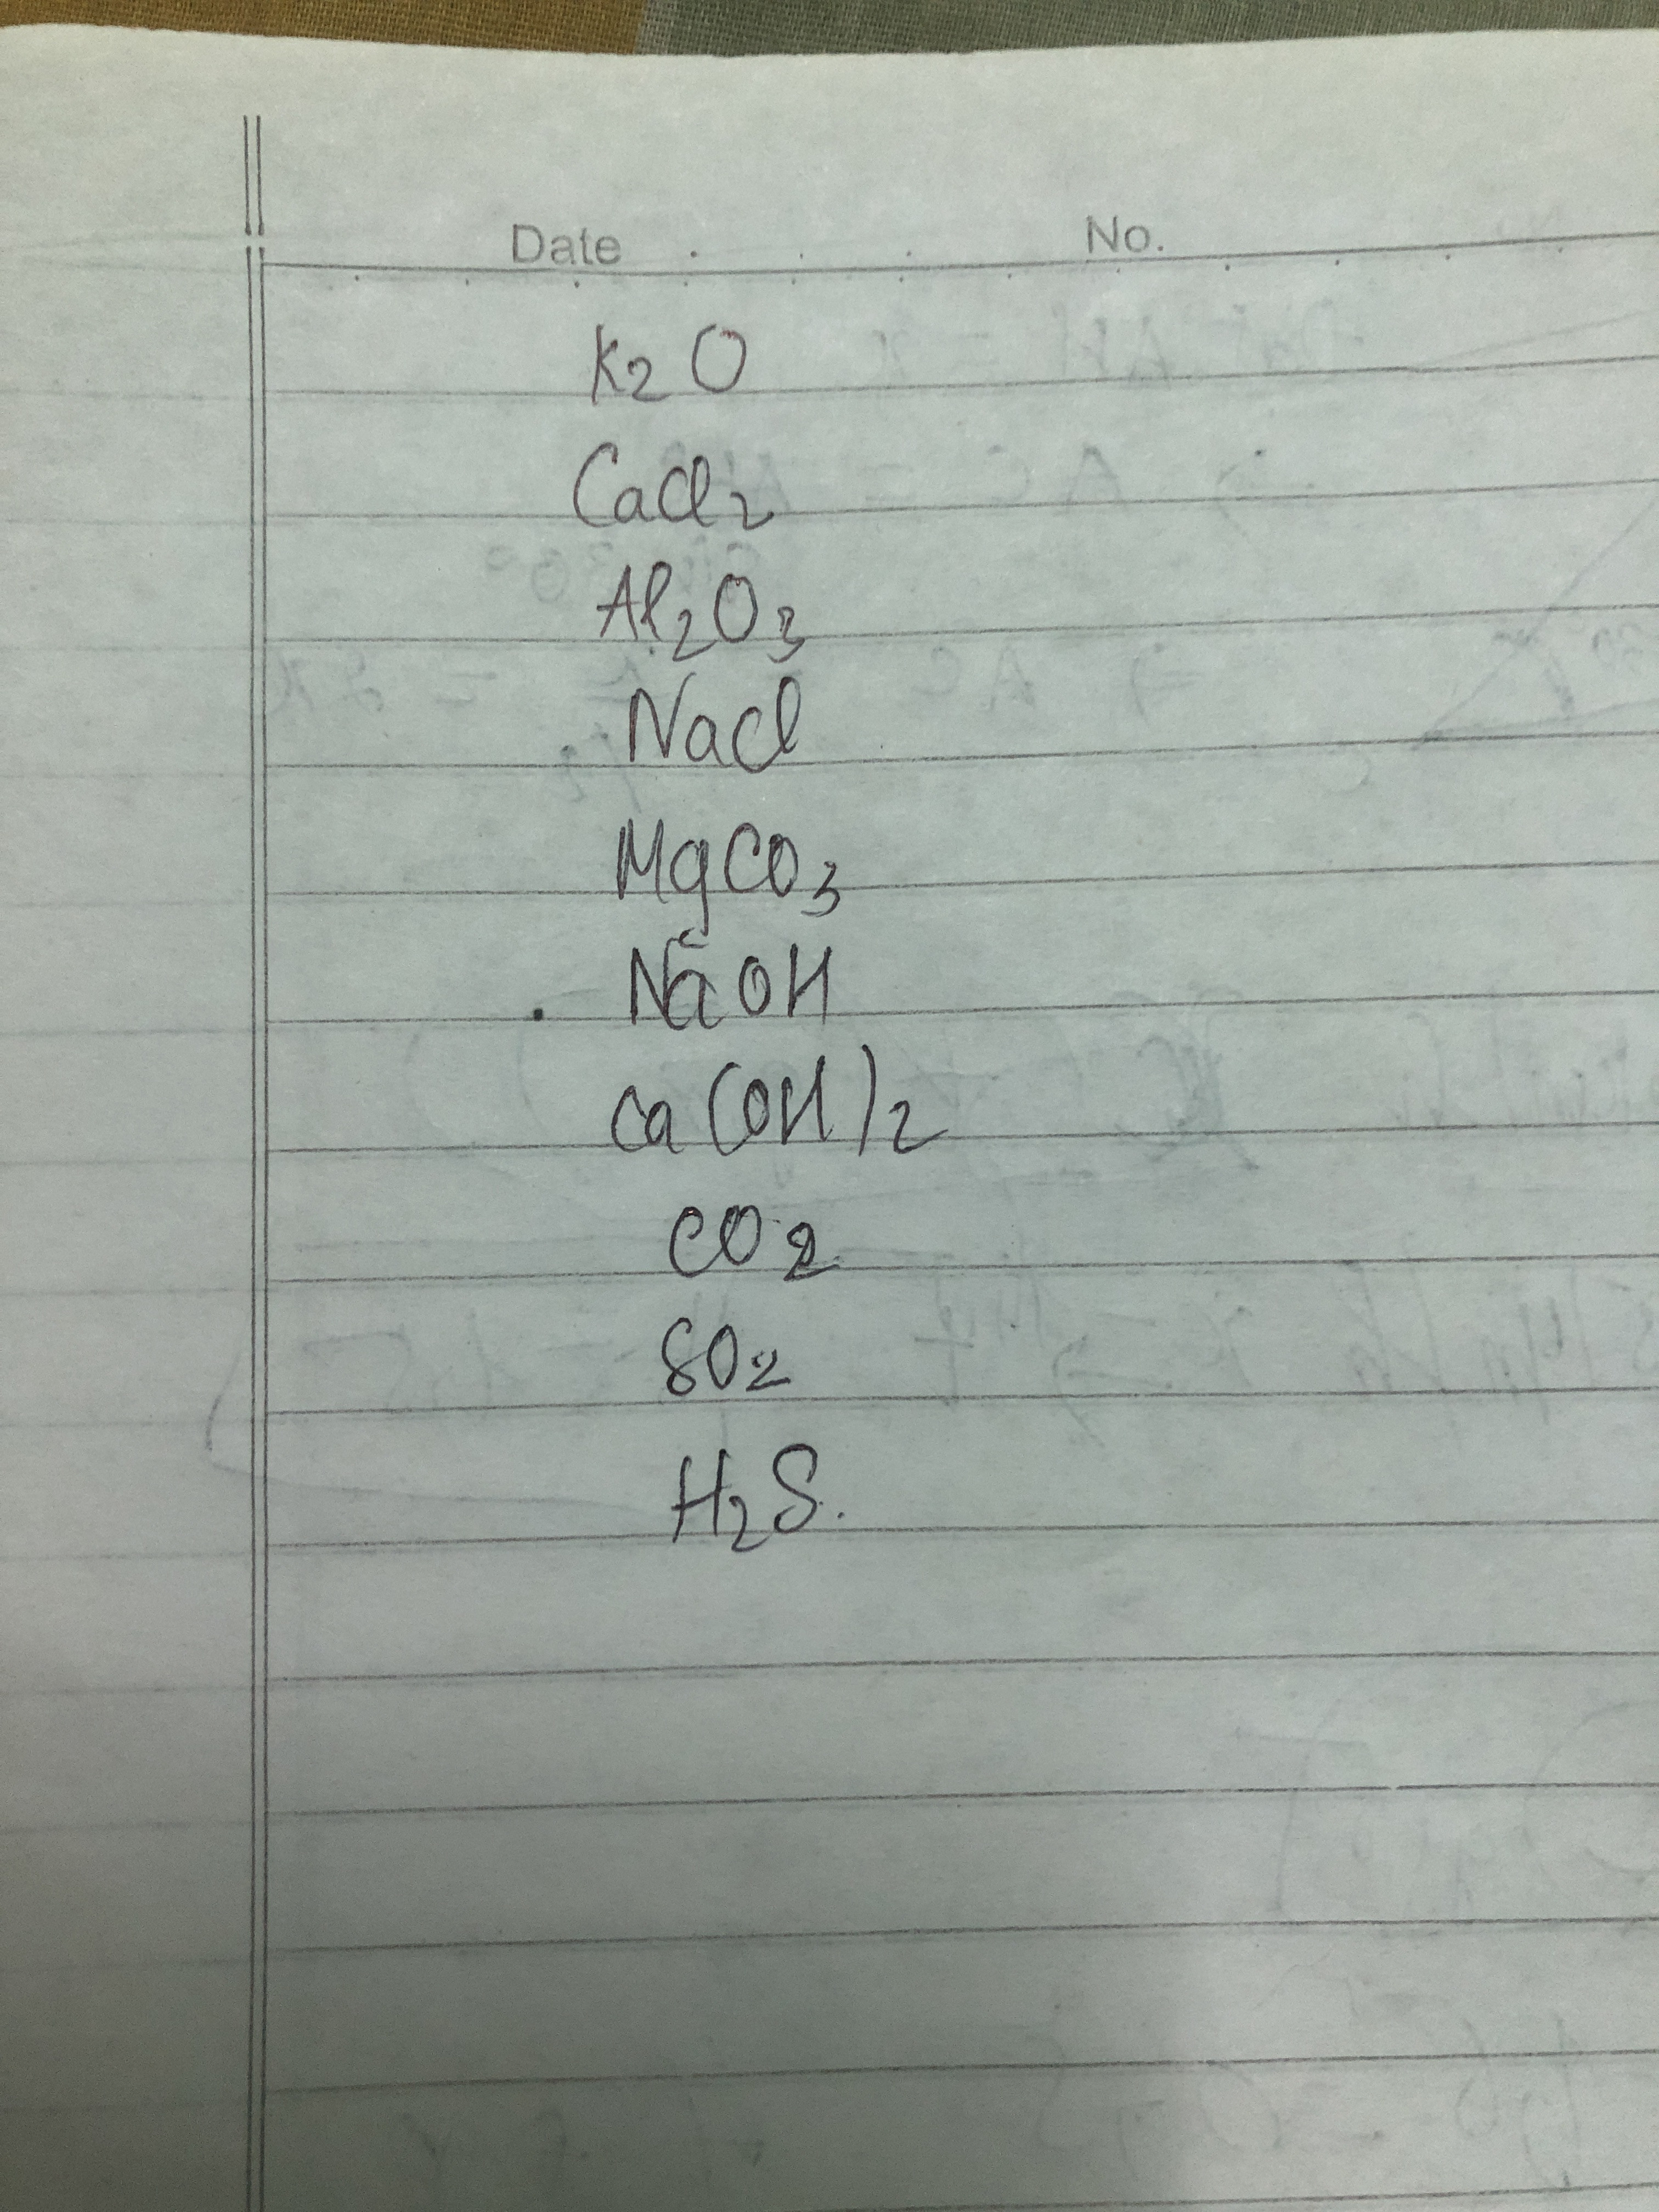 Date No.
K2O
CaCl2
Al2O3
NaCl
MgCO3
NaOH
Ca(OH)2
CO2
SO2
H2S.